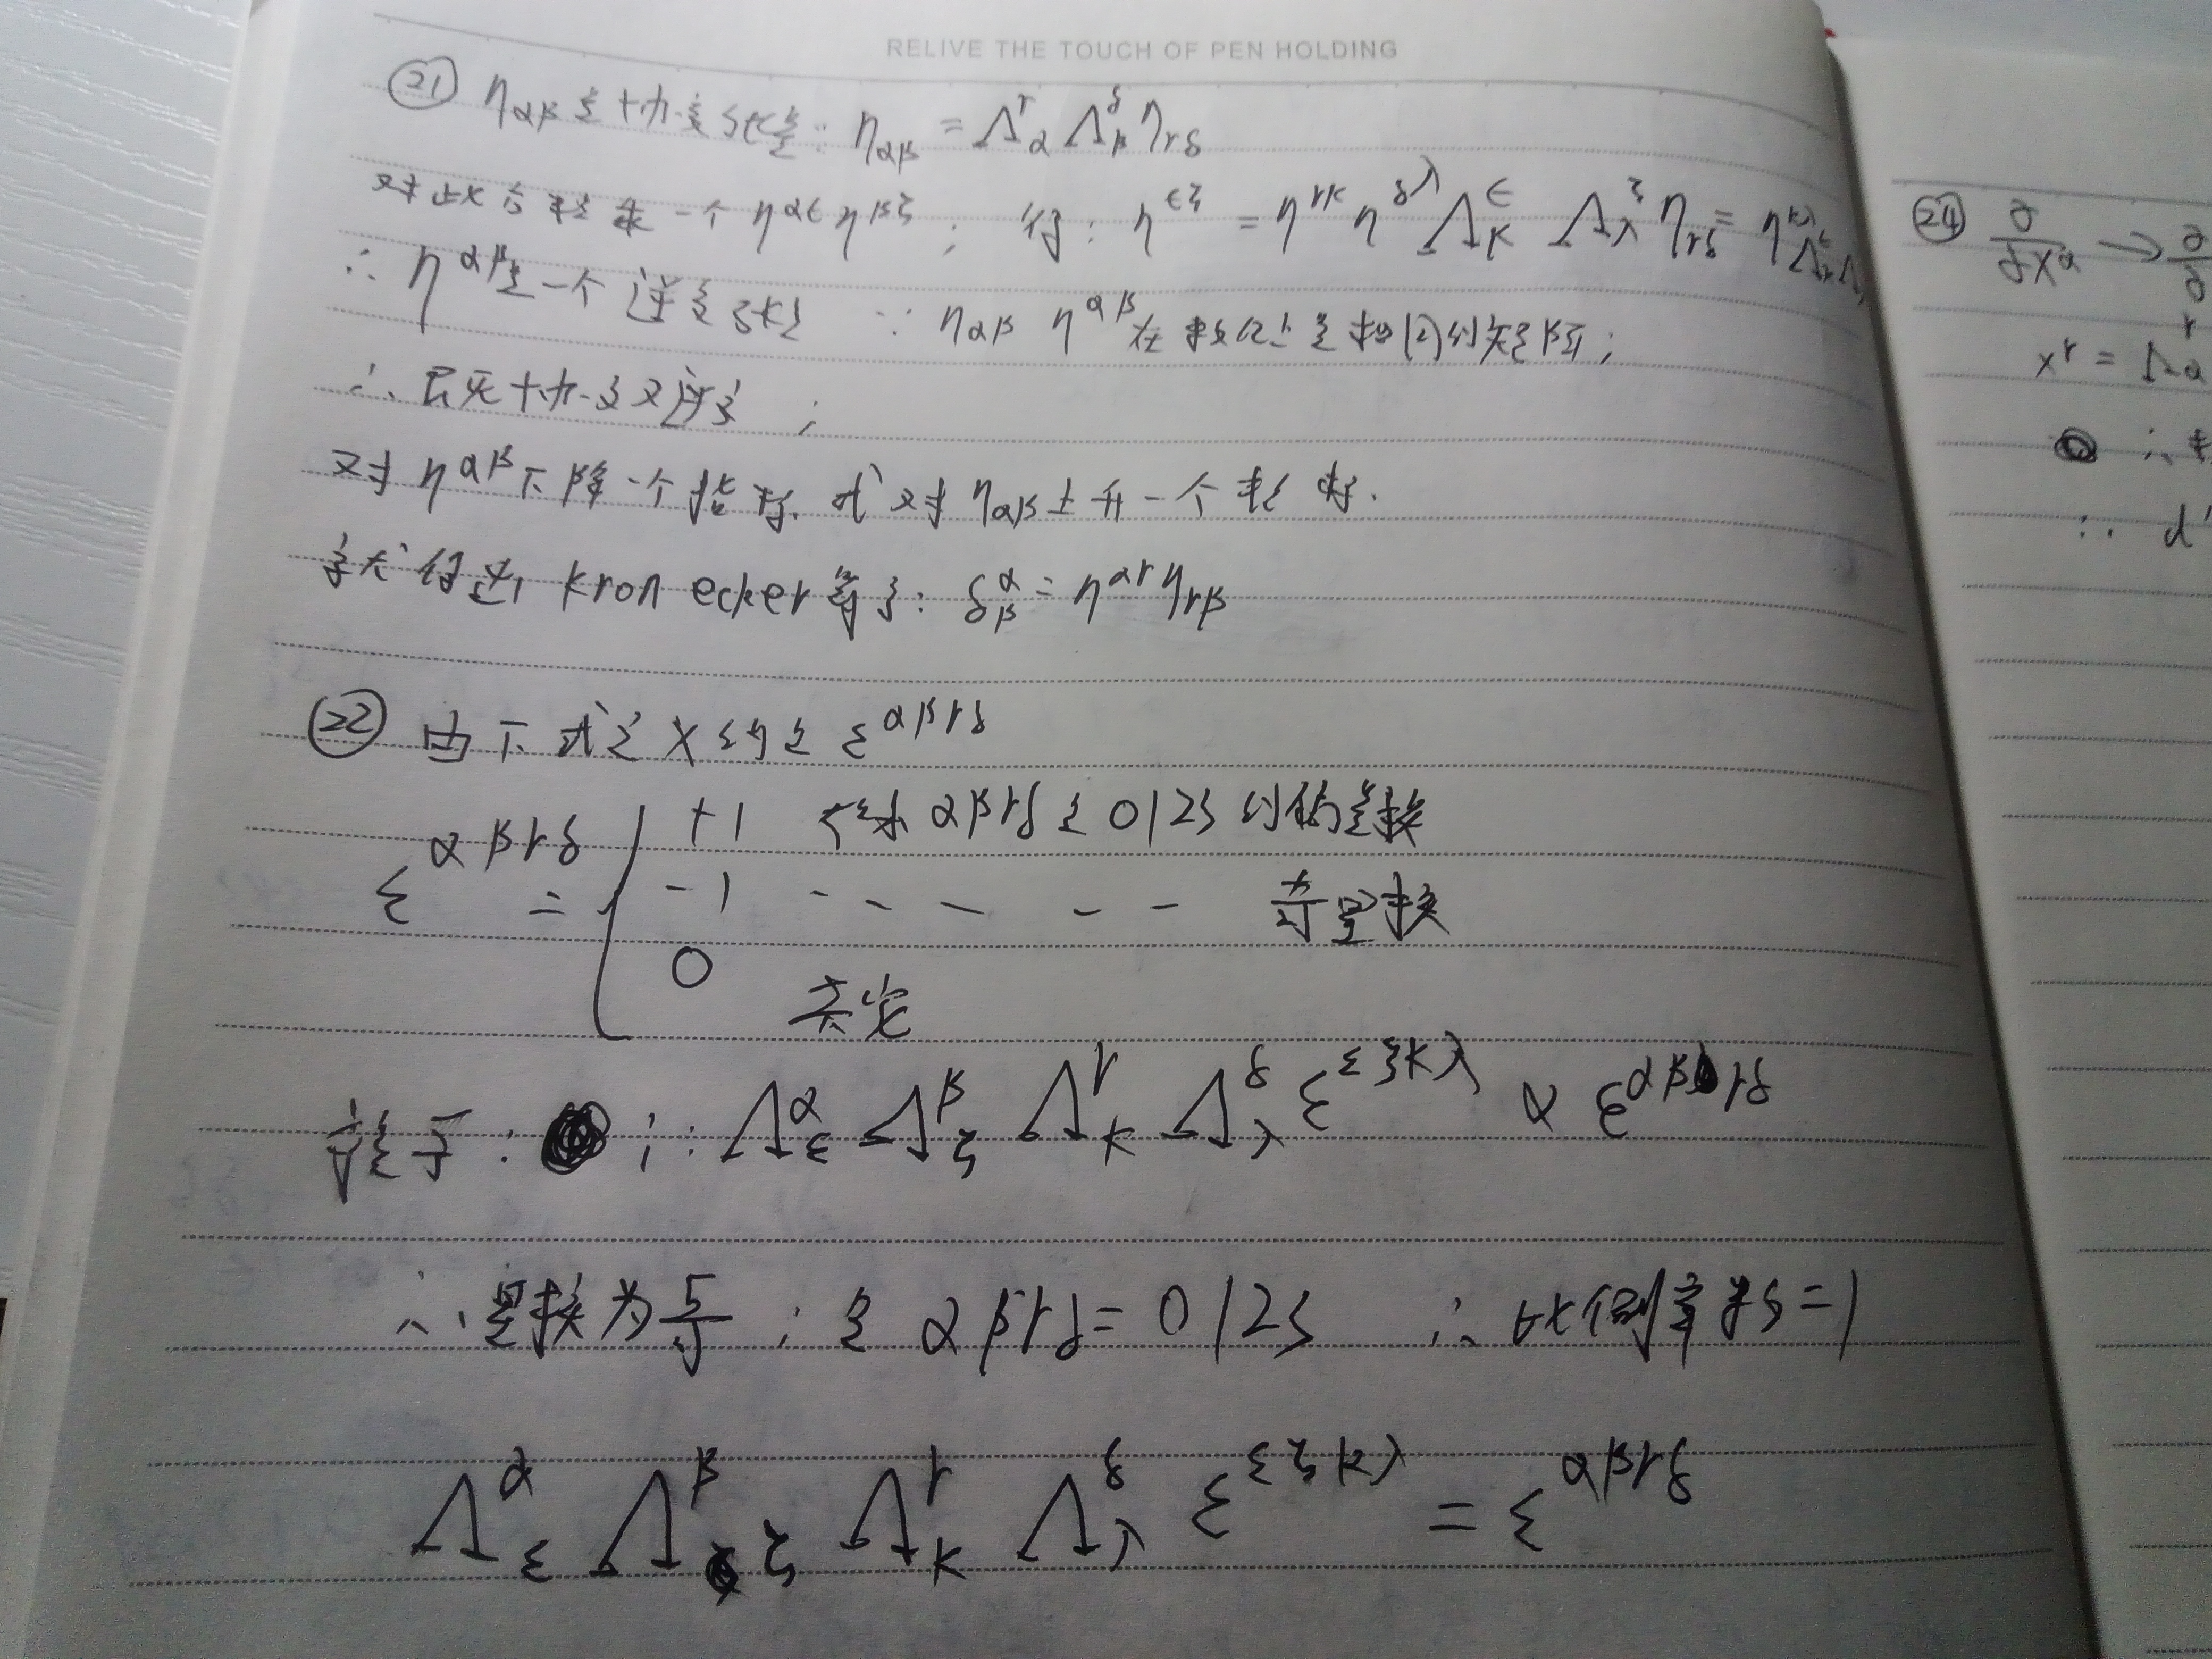 RELIVE THE TOUCH OF PEN HOLDING
㉑ ηαβ是协变张量: ηαβ = Λ^γ_α Λ^δ_β ηγδ
对此方程乘一个 η^αϵ η^βζ ; 得: η^ϵζ = η^γκ η^δλ Λ^ϵ_κ Λ^ζ_λ ηγδ = η^κλ
∴ η^αβ是一个逆变张量 ∵ ηαβ η^αβ 在数值上是相同的矩阵;
∴ 既是协变又逆变 ;
对 η^αβ 下降一个指标 或对 ηαβ 上升一个指标.
就得到 kronecker符号: δ^α_β = η^αγ ηγβ
㉒ 由下式定义的是 ε^αβγδ
ε^αβγδ = { +1 αβγδ是0123的偶置换
-1 - - - - - 奇置换
0 其它
∵ Λ^α_ε Λ^β_ζ Λ^γ_κ Λ^δ_λ ε^εζκλ ∝ ε^αβγδ
∴ 置换为 ; αβγδ = 0123 ∴ 比例常数=1
Λ^α_ε Λ^β_ζ Λ^γ_κ Λ^δ_λ ε^εζκλ = ε^αβγδ
㉔ ∂/∂x^α → ∂
x^γ = Λα
∴
∴ d'